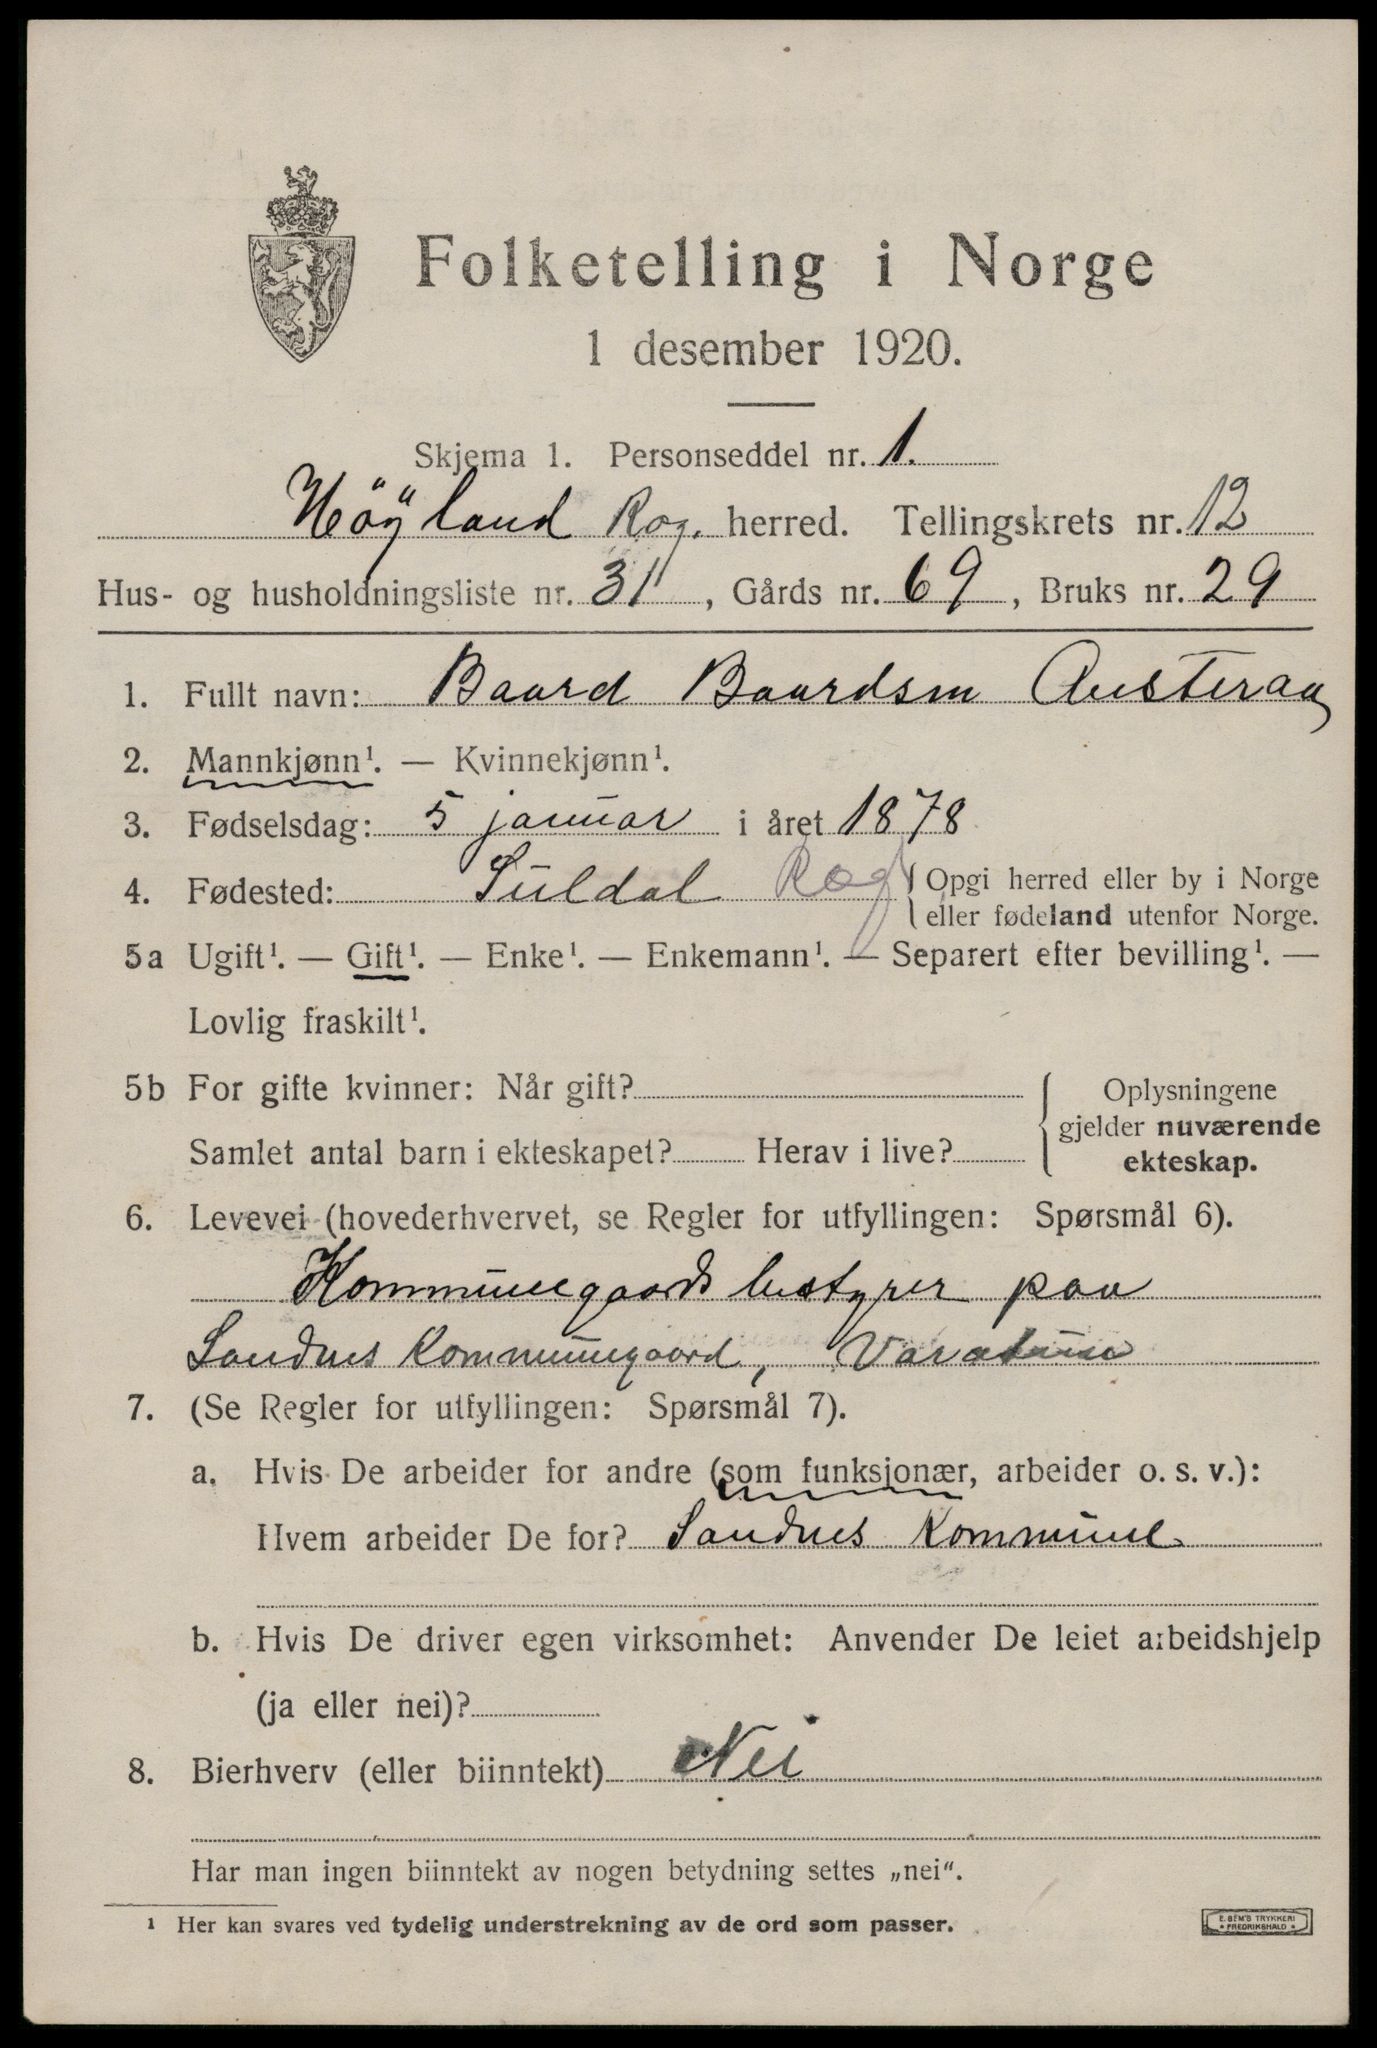 Folketelling i Norge
1 desember 1920.
Skjema 1. Personseddel nr. 1.
Höÿland Rog. herred. Tellingskrets nr. 12
Hus- og husholdningsliste nr. 31, Gårds nr. 69, Bruks nr. 29
1. Fullt navn: Baard Baardsen Austeraa
2. Mannkjønn¹. — Kvinnekjønn¹.
3. Fødselsdag: 5 januar i året 1878
4. Fødested: Suldal Rog { Opgi herred eller by i Norge
eller fødeland utenfor Norge.
5a Ugift¹. — Gift¹. — Enke¹. — Enkemann¹. — Separert efter bevilling¹. —
Lovlig fraskilt¹.
5b For gifte kvinner: Når gift? { Oplysningene
gjelder nuværende
Samlet antal barn i ekteskapet? Herav i live? ekteskap.
6. Levevei (hovederhvervet, se Regler for utfyllingen: Spørsmål 6).
Kommunegaardsbestyrer paa
Sandnes Kommunegaard, Varatun
7. (Se Regler for utfyllingen: Spørsmål 7).
a. Hvis De arbeider for andre (som funksjonær, arbeider o. s. v.):
Hvem arbeider De for? Sandnes Kommune
b. Hvis De driver egen virksomhet: Anvender De leiet arbeidshjelp
(ja eller nei)?
8. Bierhverv (eller biinntekt) Nei
Har man ingen biinntekt av nogen betydning settes „nei“.
¹ Her kan svares ved tydelig understrekning av de ord som passer.
E. SEM'S TRYKKERI
* FREDRIKSHALD *